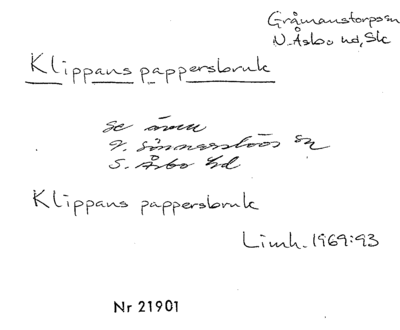 Gråmanstorps sn
N. Åsbo hd, Sk
Klippans pappersbruk
se även
S. Åsbo hd
Klippans pappersbruk
Limh. 1969:93
Nr 21901